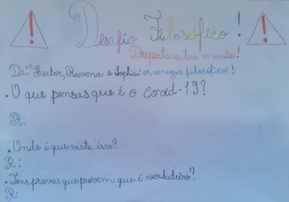 Desafio Filosófico!
Desperta a tua mente!
De: Heitor, Ramma e Sophia: os amigos filosóficos!
. O que pensas que é o covid-19?
R:
. Onde é que viste isso?
R:
. Tens provas que provem que é verdadeiro?
R: